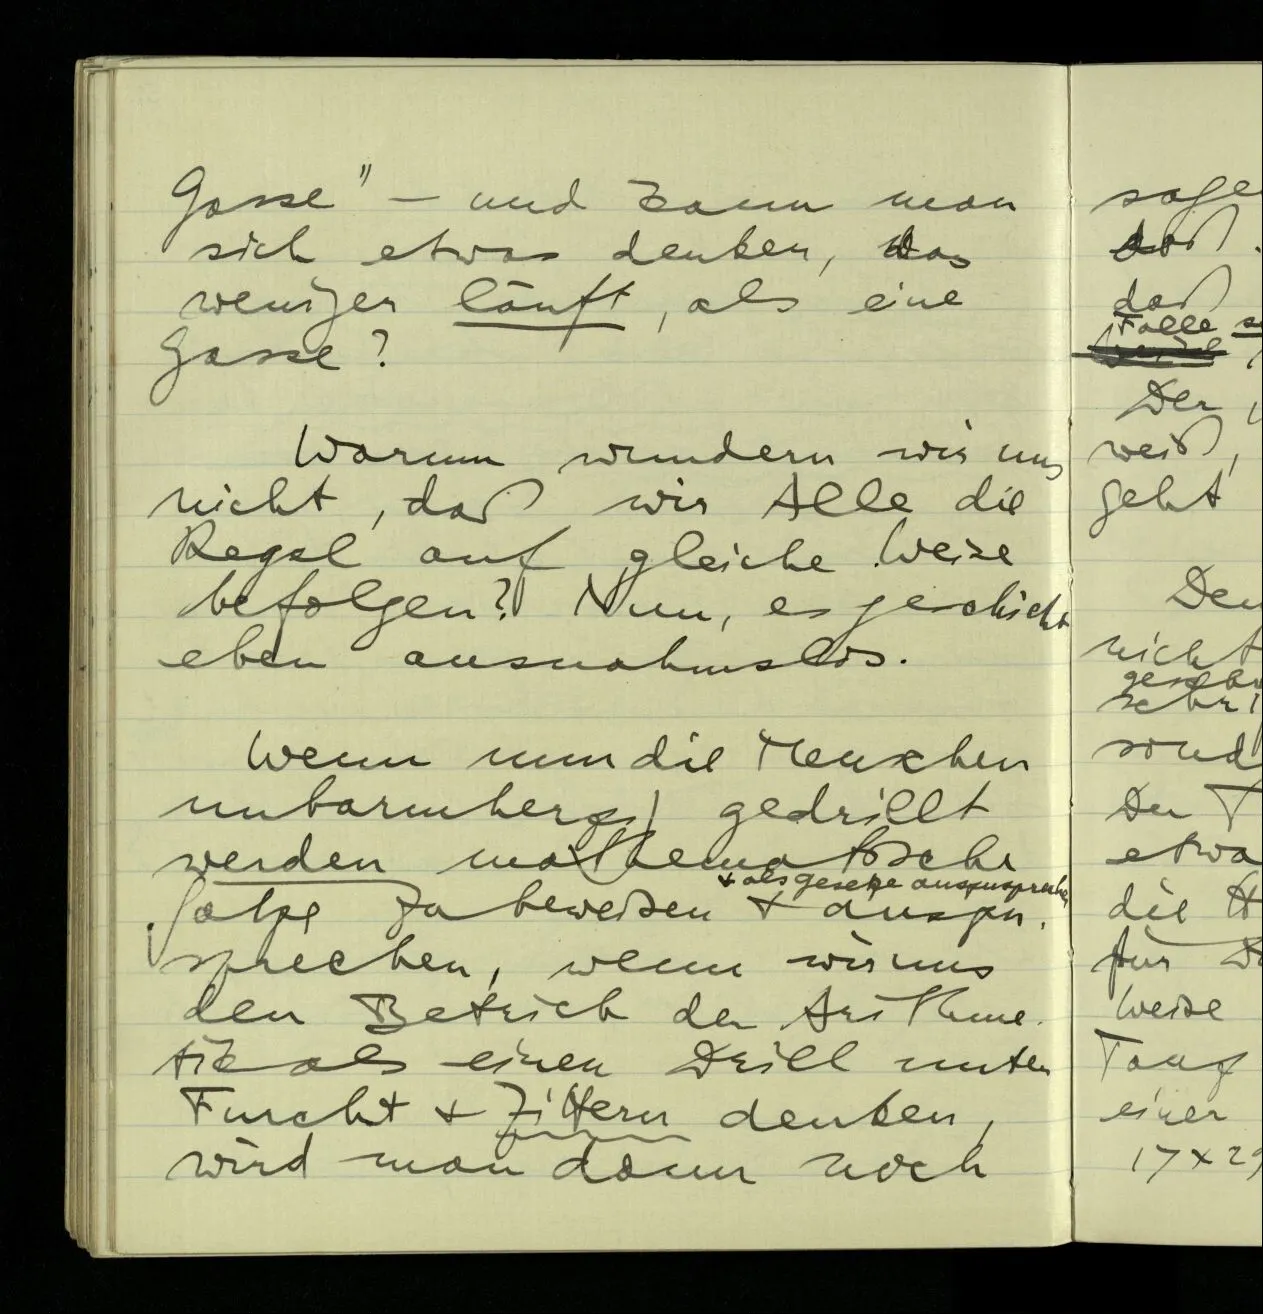 Gasse" – und kann man
sich etwas denken, das
weniger läuft, als eine
Gasse?
Warum wundern wir uns
nicht, daß wir Alle die
Regel auf gleiche Weise
befolgen? Nun, es geschieht
eben ausnahmslos.
Wenn nun die Menschen
unbarmherzig gedrillt
werden mathematische
+ als Gesetze auszusprechen
Sätze zu beweisen + auszu-
sprechen, wenn wir uns
den Betrieb der Arithme-
tik als einen Drill unter
Furcht + Zittern denken,
wird man dann noch
sage
daß
daß
Fälle
Der
weiß,
geht
nicht
sond
etwa
die
für
Weise
einer
17 × 29